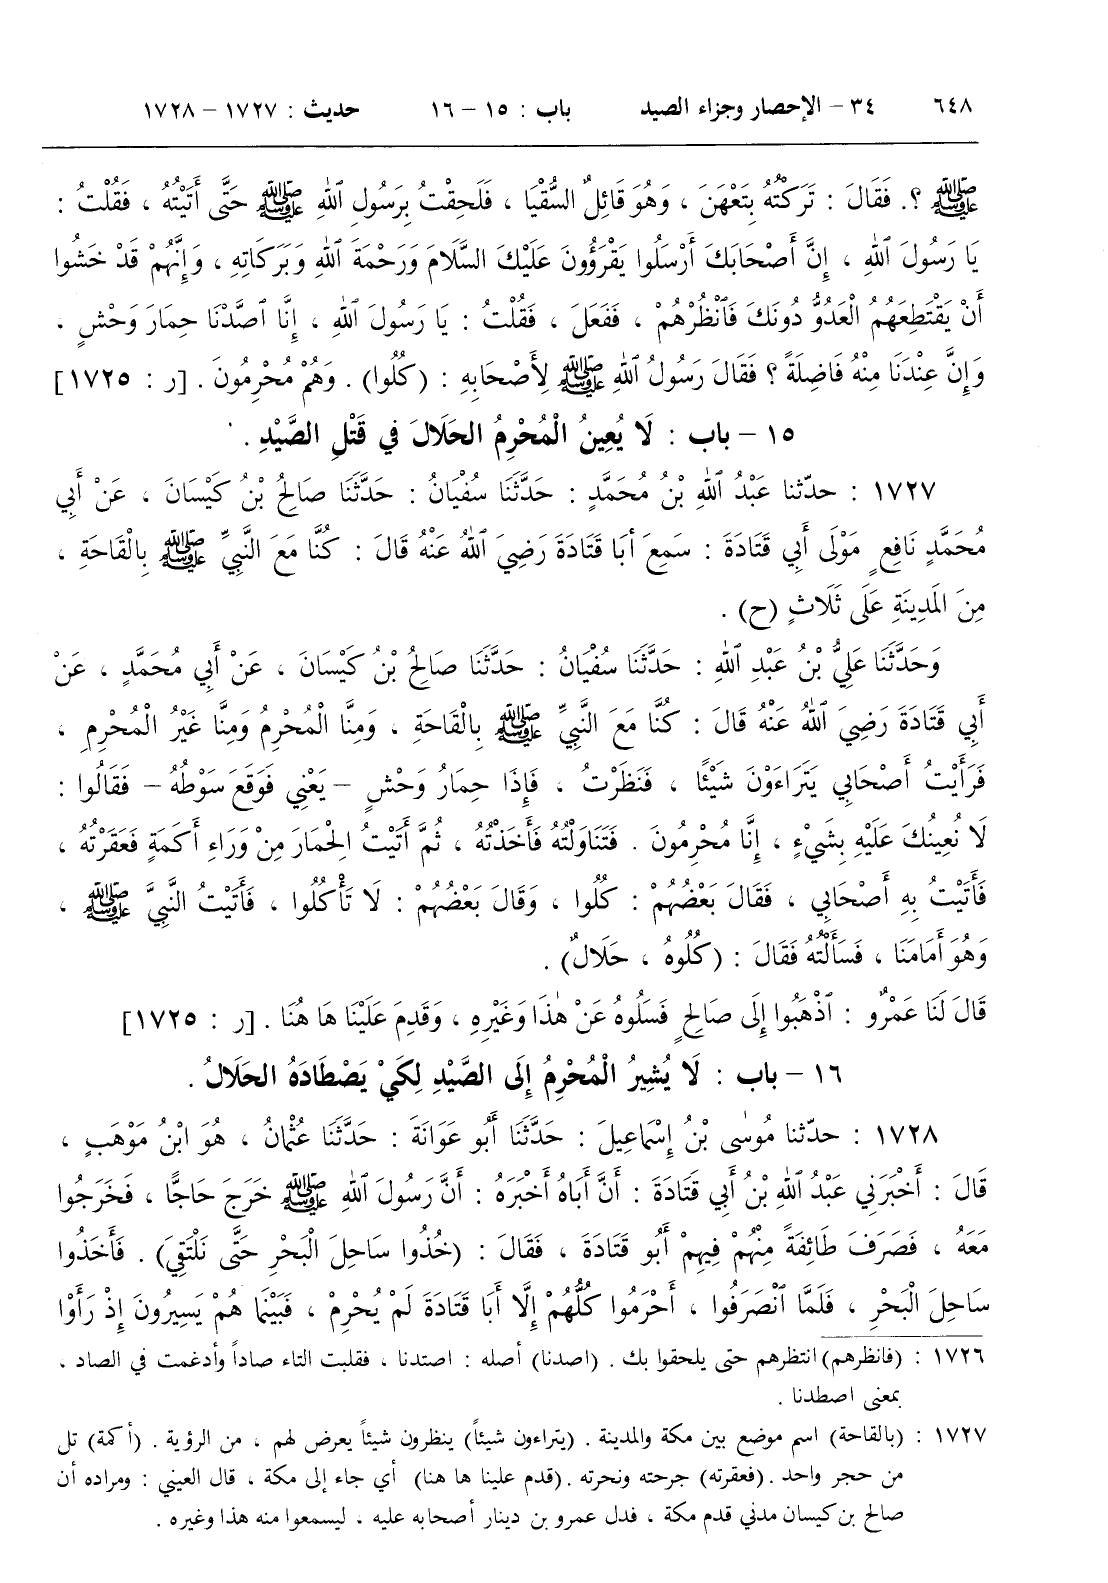 ٦٤٨ ٣٤ – الإحصار وجزاء الصيد باب : ١٥ – ١٦ حديث : ١٧٢٧ – ١٧٢٨
ﷺ ؟. فَقَالَ : تَرَكْتُهُ بِتَعْهَنَ ، وَهُوَ قَائِلٌ السُّقْيَا ، فَلَحِقْتُ بِرَسُولِ ٱللهِ ﷺ حَتَّى أَتَيْتُهُ ، فَقُلْتُ :
يَا رَسُولَ ٱللهِ ، إِنَّ أَصْحَابَكَ أَرْسَلُوا يَقْرَؤُونَ عَلَيْكَ السَّلَامَ وَرَحْمَةَ ٱللهِ وَبَرَكَاتِهِ ، وَإِنَّهُمْ قَدْ خَشُوا
أَنْ يَقْتَطِعَهُمُ الْعَدُوُّ دُونَكَ فَٱنْظُرْهُمْ ، فَفَعَلَ ، فَقُلْتُ : يَا رَسُولَ ٱللهِ ، إِنَّا ٱصَّدْنَا حِمَارَ وَحْشٍ ،
وَإِنَّ عِنْدَنَا مِنْهُ فَاضِلَةً ؟ فَقَالَ رَسُولُ ٱللهِ ﷺ لِأَصْحَابِهِ : (كُلُوا) . وَهُمْ مُحْرِمُونَ . [ر : ١٧٢٥]
١٥ – باب : لَا يُعِينُ الْمُحْرِمُ الحَلَالَ في قَتْلِ الصَّيْدِ .
١٧٢٧ : حدّثنا عَبْدُ ٱللهِ بْنُ مُحَمَّدٍ : حَدَّثَنَا سُفْيَانُ : حَدَّثَنَا صَالِحُ بْنُ كَيْسَانَ ، عَنْ أَبِي
مُحَمَّدٍ نَافِعٍ مَوْلَى أَبِي قَتَادَةَ : سَمِعَ أَبَا قَتَادَةَ رَضِيَ ٱللهُ عَنْهُ قَالَ : كُنَّا مَعَ النَّبِيِّ ﷺ بِالْقَاحَةِ ،
مِنَ المَدِينَةِ عَلَى ثَلَاثٍ (ح) .
وَحَدَّثَنَا عَلِيُّ بْنُ عَبْدِ ٱللهِ : حَدَّثَنَا سُفْيَانُ : حَدَّثَنَا صَالِحُ بْنُ كَيْسَانَ ، عَنْ أَبِي مُحَمَّدٍ ، عَنْ
أَبِي قَتَادَةَ رَضِيَ ٱللهُ عَنْهُ قَالَ : كُنَّا مَعَ النَّبِيِّ ﷺ بِالْقَاحَةِ ، وَمِنَّا الْمُحْرِمُ وَمِنَّا غَيْرُ الْمُحْرِمِ ،
فَرَأَيْتُ أَصْحَابِي يَتَرَاءَوْنَ شَيْئًا ، فَنَظَرْتُ ، فَإِذَا حِمَارُ وَحْشٍ – يَعْنِي فَوَقَعَ سَوْطُهُ – فَقَالُوا :
لَا نُعِينُكَ عَلَيْهِ بِشَيْءٍ ، إِنَّا مُحْرِمُونَ . فَتَنَاوَلْتُهُ فَأَخَذْتُهُ ، ثُمَّ أَتَيْتُ الْحِمَارَ مِنْ وَرَاءِ أَكَمَةٍ فَعَقَرْتُهُ ،
فَأَتَيْتُ بِهِ أَصْحَابِي ، فَقَالَ بَعْضُهُمْ : كُلُوا ، وَقَالَ بَعْضُهُمْ : لَا تَأْكُلُوا ، فَأَتَيْتُ النَّبِيَّ ﷺ ،
وَهُوَ أَمَامَنَا ، فَسَأَلْتُهُ فَقَالَ : (كُلُوهُ ، حَلَالٌ) .
قَالَ لَنَا عَمْرٌو : ٱذْهَبُوا إِلَى صَالِحٍ فَسَلُوهُ عَنْ هٰذَا وَغَيْرِهِ ، وَقَدِمَ عَلَيْنَا هَا هُنَا . [ر : ١٧٢٥]
١٦ – باب : لَا يُشِيرُ الْمُحْرِمُ إِلَى الصَّيْدِ لِكَيْ يَصْطَادَهُ الحَلَالُ .
١٧٢٨ : حدّثنا مُوسٰى بْنُ إِسْمَاعِيلَ : حَدَّثَنَا أَبُو عَوَانَةَ : حَدَّثَنَا عُثْمَانُ ، هُوَ ابْنُ مَوْهَبٍ ،
قَالَ : أَخْبَرَنِي عَبْدُ ٱللهِ بْنُ أَبِي قَتَادَةَ : أَنَّ أَبَاهُ أَخْبَرَهُ : أَنَّ رَسُولَ ٱللهِ ﷺ خَرَجَ حَاجًّا ، فَخَرَجُوا
مَعَهُ ، فَصَرَفَ طَائِفَةً مِنْهُمْ فِيهِمْ أَبُو قَتَادَةَ ، فَقَالَ : (خُذُوا سَاحِلَ الْبَحْرِ حَتَّى نَلْتَقِيَ) . فَأَخَذُوا
سَاحِلَ الْبَحْرِ ، فَلَمَّا ٱنْصَرَفُوا ، أَحْرَمُوا كُلُّهُمْ إِلَّا أَبَا قَتَادَةَ لَمْ يُحْرِمْ ، فَبَيْنَمَا هُمْ يَسِيرُونَ إِذْ رَأَوْا
١٧٢٦ : (فانظرهم) انتظرهم حتى يلحقوا بك . (اصدنا) أصله : اصتدنا ، فقلبت التاء صاداً وأدغمت في الصاد ،
بمعنى اصطدنا .
١٧٢٧ : (بالقاحة) اسم موضع بين مكة والمدينة . (يتراءون شيئاً) ينظرون شيئاً يعرض لهم ، من الرؤية . (أكمة) تل
من حجر واحد . (فعقرته) جرحته ونحرته . (قدم علينا ها هنا) أي جاء إلى مكة ، قال العيني : ومراده أن
صالح بن كيسان مدني قدم مكة ، فدل عمرو بن دينار أصحابه عليه ، ليسمعوا منه هذا وغيره .